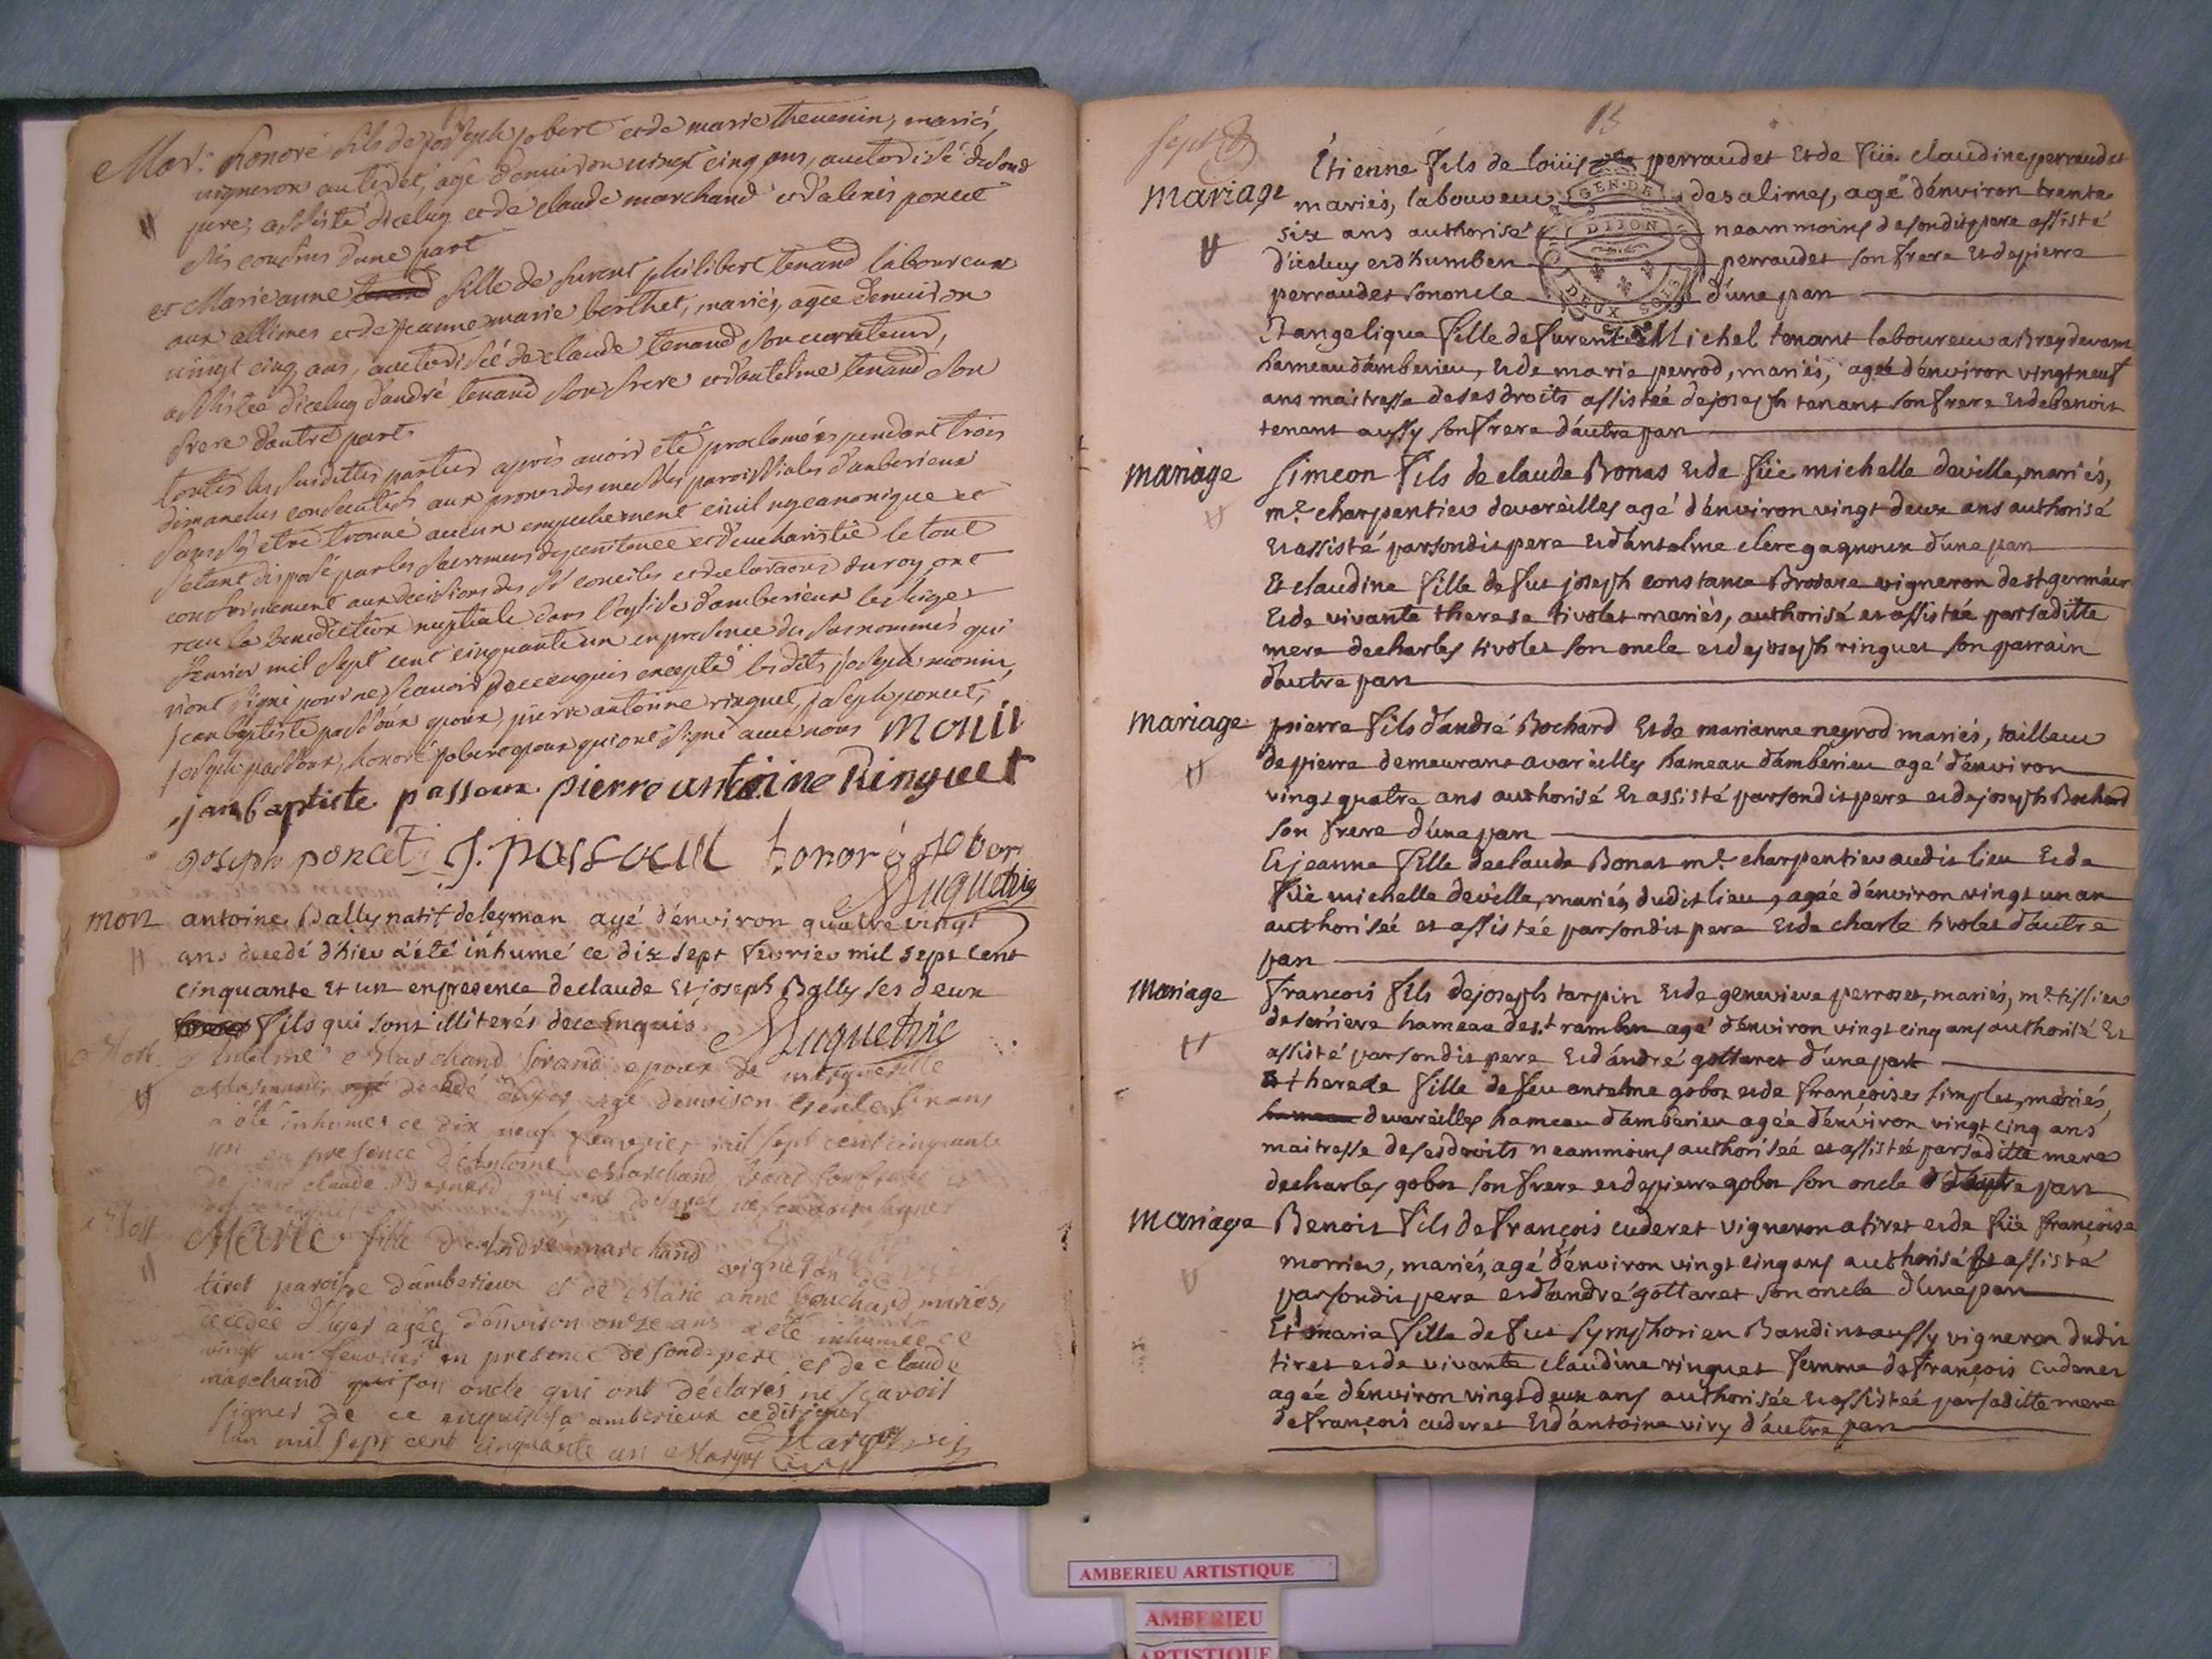 Mar: honoré fils de joseph jobert et de marie thevenin, mariés,
vigneron au tiret, agé denuiron vingt cinq ans, auctorisé de sond
pere, assisté d'iceluy et de claude marchand et d'alexis poncet
ses cousins d'une part
et Marieanne fille de furent philibert tenand laboureur
aux allimes et de jeanne marie berthet, mariés, agée denuiron
vingt cinq ans, auctorisée de claude tenand son curateur,
assistée d'iceluy d'andré tenand son frere et d'antelme tenand son
frere d'autre part
toutes les susdittes parties après avoir été proclamées pendant trois
dimanches consecutifs aux prones des messes paroissiales d'amberieux
sans s'y etre trouvé aucun empechement civil ny canonique et
s'etant disposé par les sacremens de penitence et d'eucharistie le tout
conformement aux decisions des sts conciles et declarations du roy ont
recu la benediction nuptiale dans l'eglise d'amberieux le seize
feurier mil sept cent cinquante un en presence des susnommés qui
n'ont signé pour ne sçavoir de ce enquis excepté lesdits joseph monin,
jean baptiste passoux epoux, pierre antoinne ringuet, joseph poncet,
joseph passoux, honoré jobert epoux qui ont signé avec nous monin
jan baptiste passoux pierre antoine Ringuet
joseph poncet J. passoux honoré jober
Muguetrie
mort antoine Bally natif de leyman agé d'environ quatre vingt
ans decedé d'hier a été inhumé ce dix sept fevrier mil sept cent
cinquante et un en presence de claude et joseph Bally ses deux
fils qui sont illiterés de ce enquis Muguetrie
Mort Antelme Marchand époux de
decedé agé denvison trente ans
a été inhumer ce dix neuf feuvrier mil sept cent cinquante
un en presence d'Antoine Marchand son frere
de jean claude Bernard qui ont declarés ne scavoir signer
Mort Marie fille d'André marchand vigneron
tiret paroisse d'amberieux et de Marie anne bouchard mariés,
decedée d'hyer agée d'envison onze ans a été inhumée ce
vingt un feuvrier en presence de sond. pere et de claude
marchand son oncle qui ont déclarés ne sçavoir
signer de ce enquis a amberieux cedit jour
lan mil sept cent cinquante un
13
mariage Étienne fils de loüis perraudet et de füe claudine perraudet
mariés, laboureur des alimes, agé d'énviron trente
six ans authorisé neammoins de sondit pere assisté
d'iceluy et d'humber perraudet son frere et de pierre
perraudet son oncle d'une part
GEN. DE
DIJON
DEUX SOLS
Et angelique fille de furent Michel tenant laboureur a Breydevent
hameau d'amberieu, et de marie perrod, mariés, agée d'énviron vingt neuf
ans maitresse de ses droits assistée de joseph tenant son frere et de benoit
tenant aussy son frere d'autre part
mariage Simeon fils de claude Bonas et de füe michelle deville, mariés,
me charpentier de vareilles agé d'énviron vingt deux ans authorisé
et assisté par sondit pere et d'antelme clerc gagneux d'une part
Et claudine fille de fut joseph constance vigneron de st germain
et de vivante therese tivolet mariés, authorisé et assistée par saditte
mere de charles tivolet son oncle et de joseph ringuet son parrain
d'autre part
mariage pierre fils d'andré Bochard et de marianne neyrod mariés, tailleur
de pierre demeurant a vareilles hameau d'amberieu agé d'énviron
vingt quatre ans authorisé et assisté par sondit pere et de joseph Bochard
son frere d'une part
Et jeanne fille de claude Bonas me charpentier audit lieu et de
füe michelle deville, mariés dudit lieu, agée d'énviron vingt un an
authorisée et assistée par sondit pere et de charle tivolet d'autre
part
Mariage francois fils de joseph tarpin et de genevieve perroset, mariés, me tissier
de serriere hameau de st rambert agé d'énviron vingt cinq ans authorisé et
assisté par sondit pere et d'andré gottaret d'une part
Et therese fille de feu antelme gobet et de françoise simplet, mariés
de vareilles hameau d'amberieu agée d'énviron vingt cinq ans
maitresse de ses droits neammoins authorisée et assistée par saditte mere
de charles gobet son frere et de pierre gobet son oncle d'autre part
mariage Benoit fils de françois cuderet vigneron a tiret et de füe françoise
morrier, mariés, agé d'énviron vingt cinq ans authorisé et assisté
par sondit pere et d'andré gottaret son oncle d'une part
Et marie fille de fut symphorien Baudin aussy vigneron dudit
tiret et de vivante claudine ringuet femme de françois cuderet
agée d'énviron vingt deux ans authorisée et assistée par saditte mere
de françois cuderet et d'antoine viry d'autre part
AMBERIEU ARTISTIQUE
AMBERIEU
ARTISTIQUE